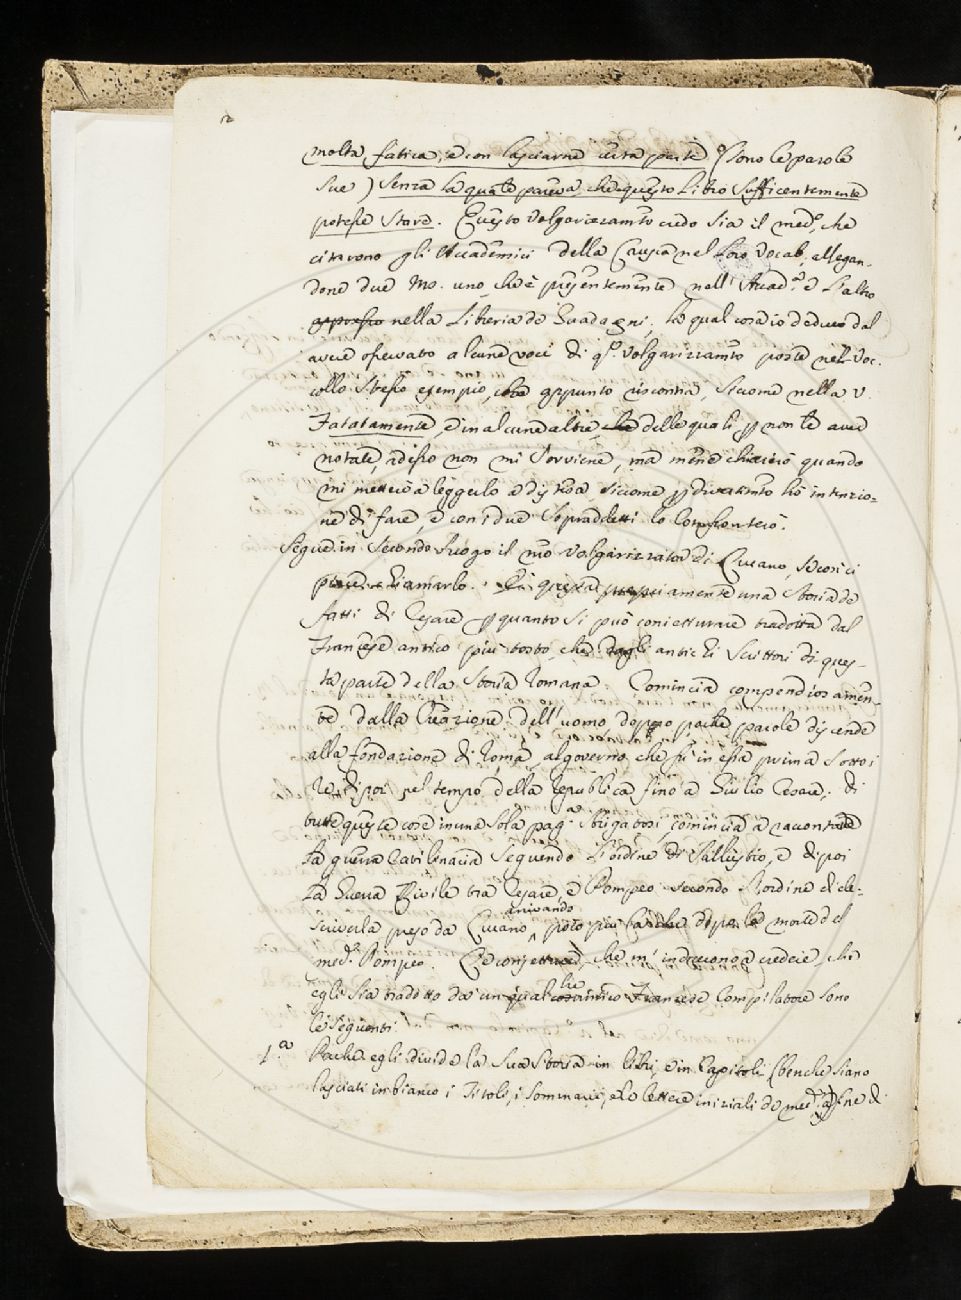 2
molta fatica, e con lasciarne certa parte (sono le parole
sue) senza la quale pareva, che questo Libro sufficentemente
potesse stare. Questo Volgarizzamto credo sia il medo, che
citarono gli Accademici della Crusca nel loro Vocab. allegan-
done due Ms. uno, che è presentemente nell' Accad.a e l'altro
appresso nella Libreria de Guadagni; la qual cosa io deduco dal
avere osservato alcune voci di qo Volgarizzamto poste nel Voc.
collo stesso esempio, appunto riscontra, siccome nella V.
Fatatamente, e in alcune altre, che delle quali p non le aver
notate, adesso non mi sovviene, ma me ne chiarirò quando
mi metterò a leggerlo a distesa siccome p divertimto ho intenzio-
ne di fare, e con i due sopraddetti lo confronterò.
Segue in secondo luogo il mio Volgarizzator di Lucano, se così ci
piace chiamarlo. È questa propriamente una Storia de
fatti di Cesare p quanto si può conietturare tradotta dal
Francese antico più tosto, che dagli antichi Scrittori di ques-
ta parte della Storia Romana. Comincia compendiosamen-
te dalla Creazione dell' uomo doppo poche parole discende
alla fondazione di Roma, al governo, che fu in essa prima sotto i
Re, di poi pel tempo della Republica fino a Giulio Cesare; di
tutte queste cose in una sola pag.a sbrigatosi, comincia a raccontare
la guerra Catilinaria seguendo l'ordine di Sallustio, e di poi
la Guerra Civile tra Cesare, e Pompeo secondo l'ordine di de-
scriverla preso da Lucano arrivando poco più là che dopo la morte del
med.o Pompeo. Le conjetture, che m' inducono a credere, che
egli sia tradotto da un qualche antico Francese Compilatore sono
le seguenti
1.a Perche egli divide la sua Storia in libri, e in Capitoli (benche siano
lasciati in bianco i Titoli, i sommarii, e le lettere iniziali de med.i) affine di